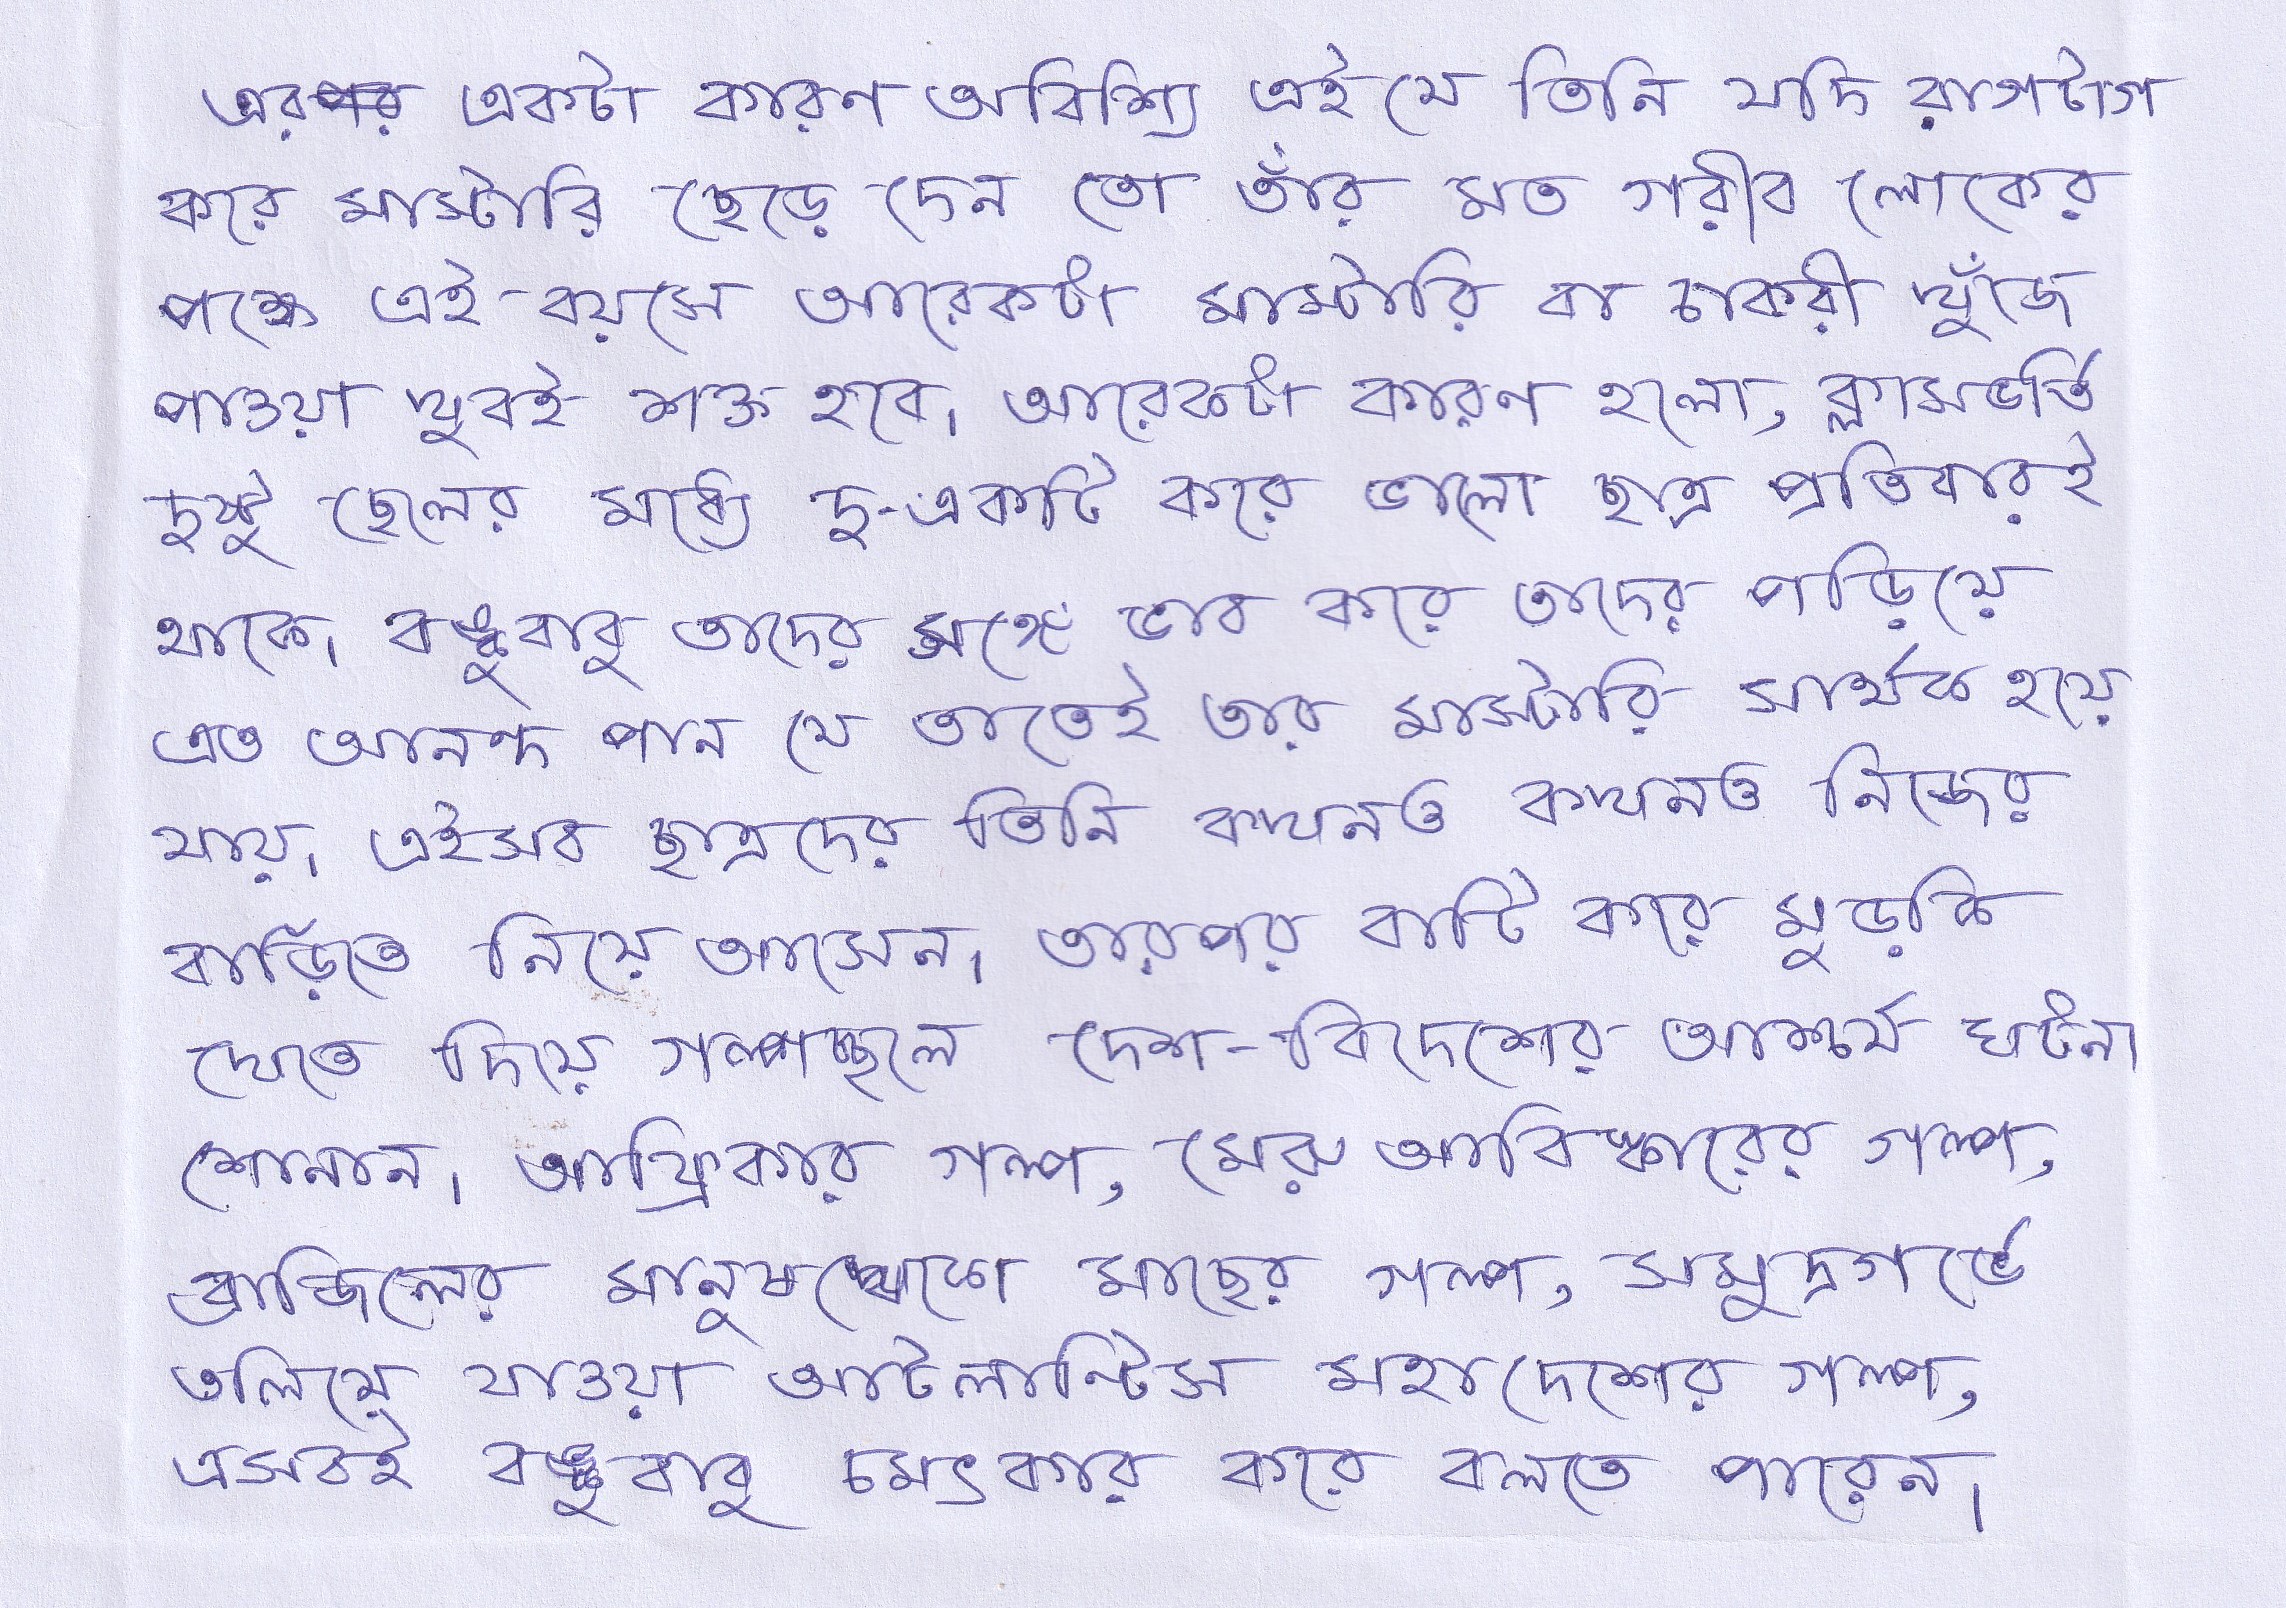 এর একটা কারণ অবিশ্যি এই যে তিনি যদি রাগটাগ
করে মাস্টারি ছেড়ে দেন তো তাঁর মত গরীব লোকের
পক্ষে এই বয়সে আরেকটা মাস্টারি বা চাকরী খুঁজে
পাওয়া খুবই শক্ত হবে। আরেকটা কারণ হলো, ক্লাসভর্তি
দুষ্টু ছেলের মধ্যে দু-একটি করে ভালো ছাত্র প্রতিবারই
থাকে। বঙ্কুবাবু তাদের সঙ্গে ভাব করে তাদের পড়িয়ে
এত আনন্দ পান যে তাতেই তার মাস্টারি সার্থক হয়ে
যায়। এইসব ছাত্রদের তিনি কখনও কখনও নিজের
বাড়িতে নিয়ে আসেন। তারপর বাটি করে মুড়কি
খেতে দিয়ে গল্পচ্ছলে দেশ-বিদেশের আশ্চর্য ঘটনা
শোনান। আফ্রিকার গল্প, মেরু আবিস্কারের গল্প,
ব্রাজিলের মানুষখেকো মাছের গল্প, সমুদ্রগর্ভে
তলিয়ে যাওয়া আটলান্টিস মহাদেশের গল্প,
এসবই বঙ্কুবাবু চমৎকার করে বলতে পারেন।